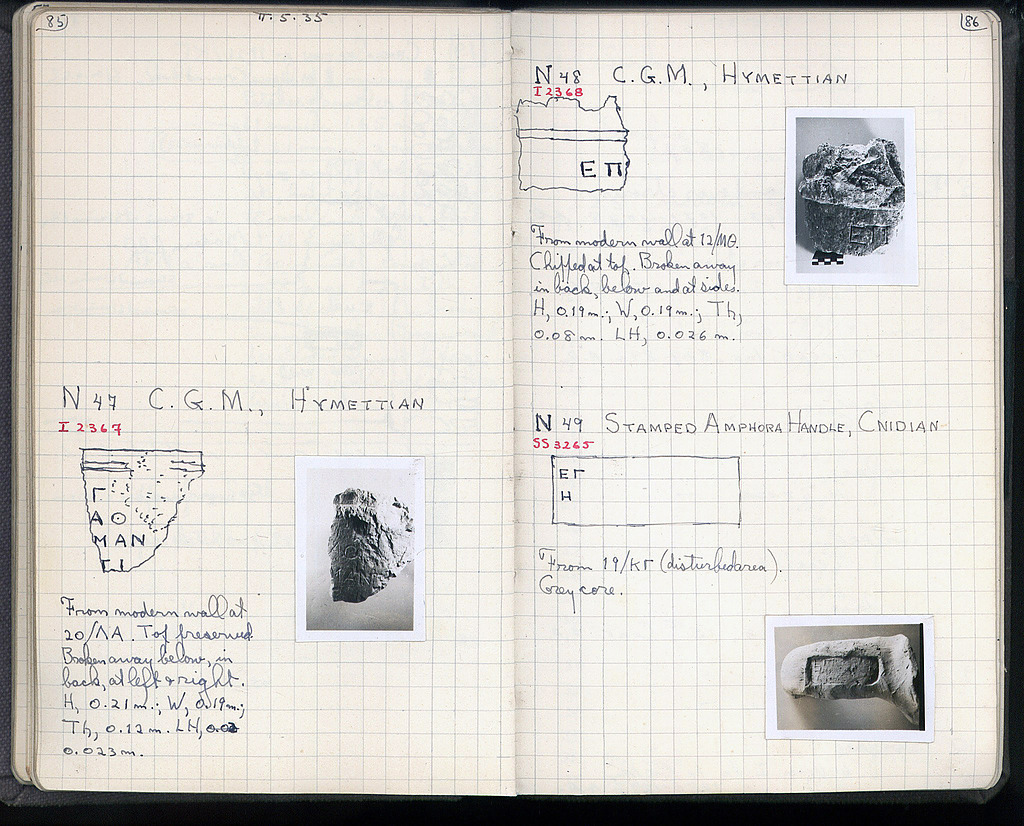 85
II.5.35
N 47 C.G.M., HYMETTIAN
I 2367
Γ
Α Ο
ΜΑΝ
From modern wall at
20/ΛΑ. Top preserved.
Broken away below, in
back, at left & right.
H, 0.21 m.; W, 0.19 m.;
Th, 0.12 m. LH, 0.02
0.023 m.
86
N 48 C.G.M., HYMETTIAN
I 2368
Ε Π
From modern wall at 12/ΜΘ.
Chipped at top. Broken away
in back, below and at sides.
H, 0.19 m.; W, 0.19 m.; Th,
0.08 m. LH, 0.026 m.
N 49 STAMPED AMPHORA HANDLE, CNIDIAN
SS 3265
ΕΓ
Η
From 19/ΚΓ (disturbed area).
Grey core.